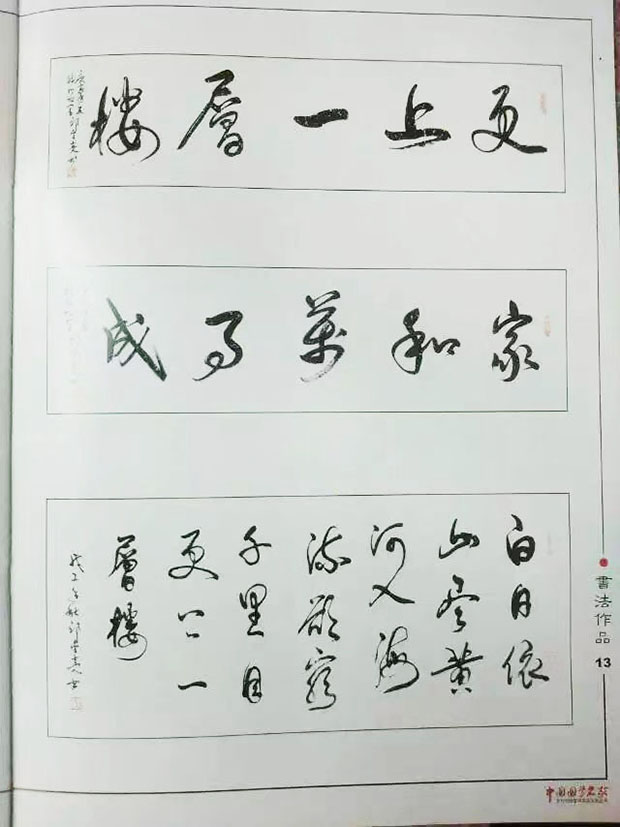 更上一層樓
家和萬事成
白日依
山尽黄
河入海
流欲窮
千里目
更上一
層樓
書法作品
13
中国国学名家